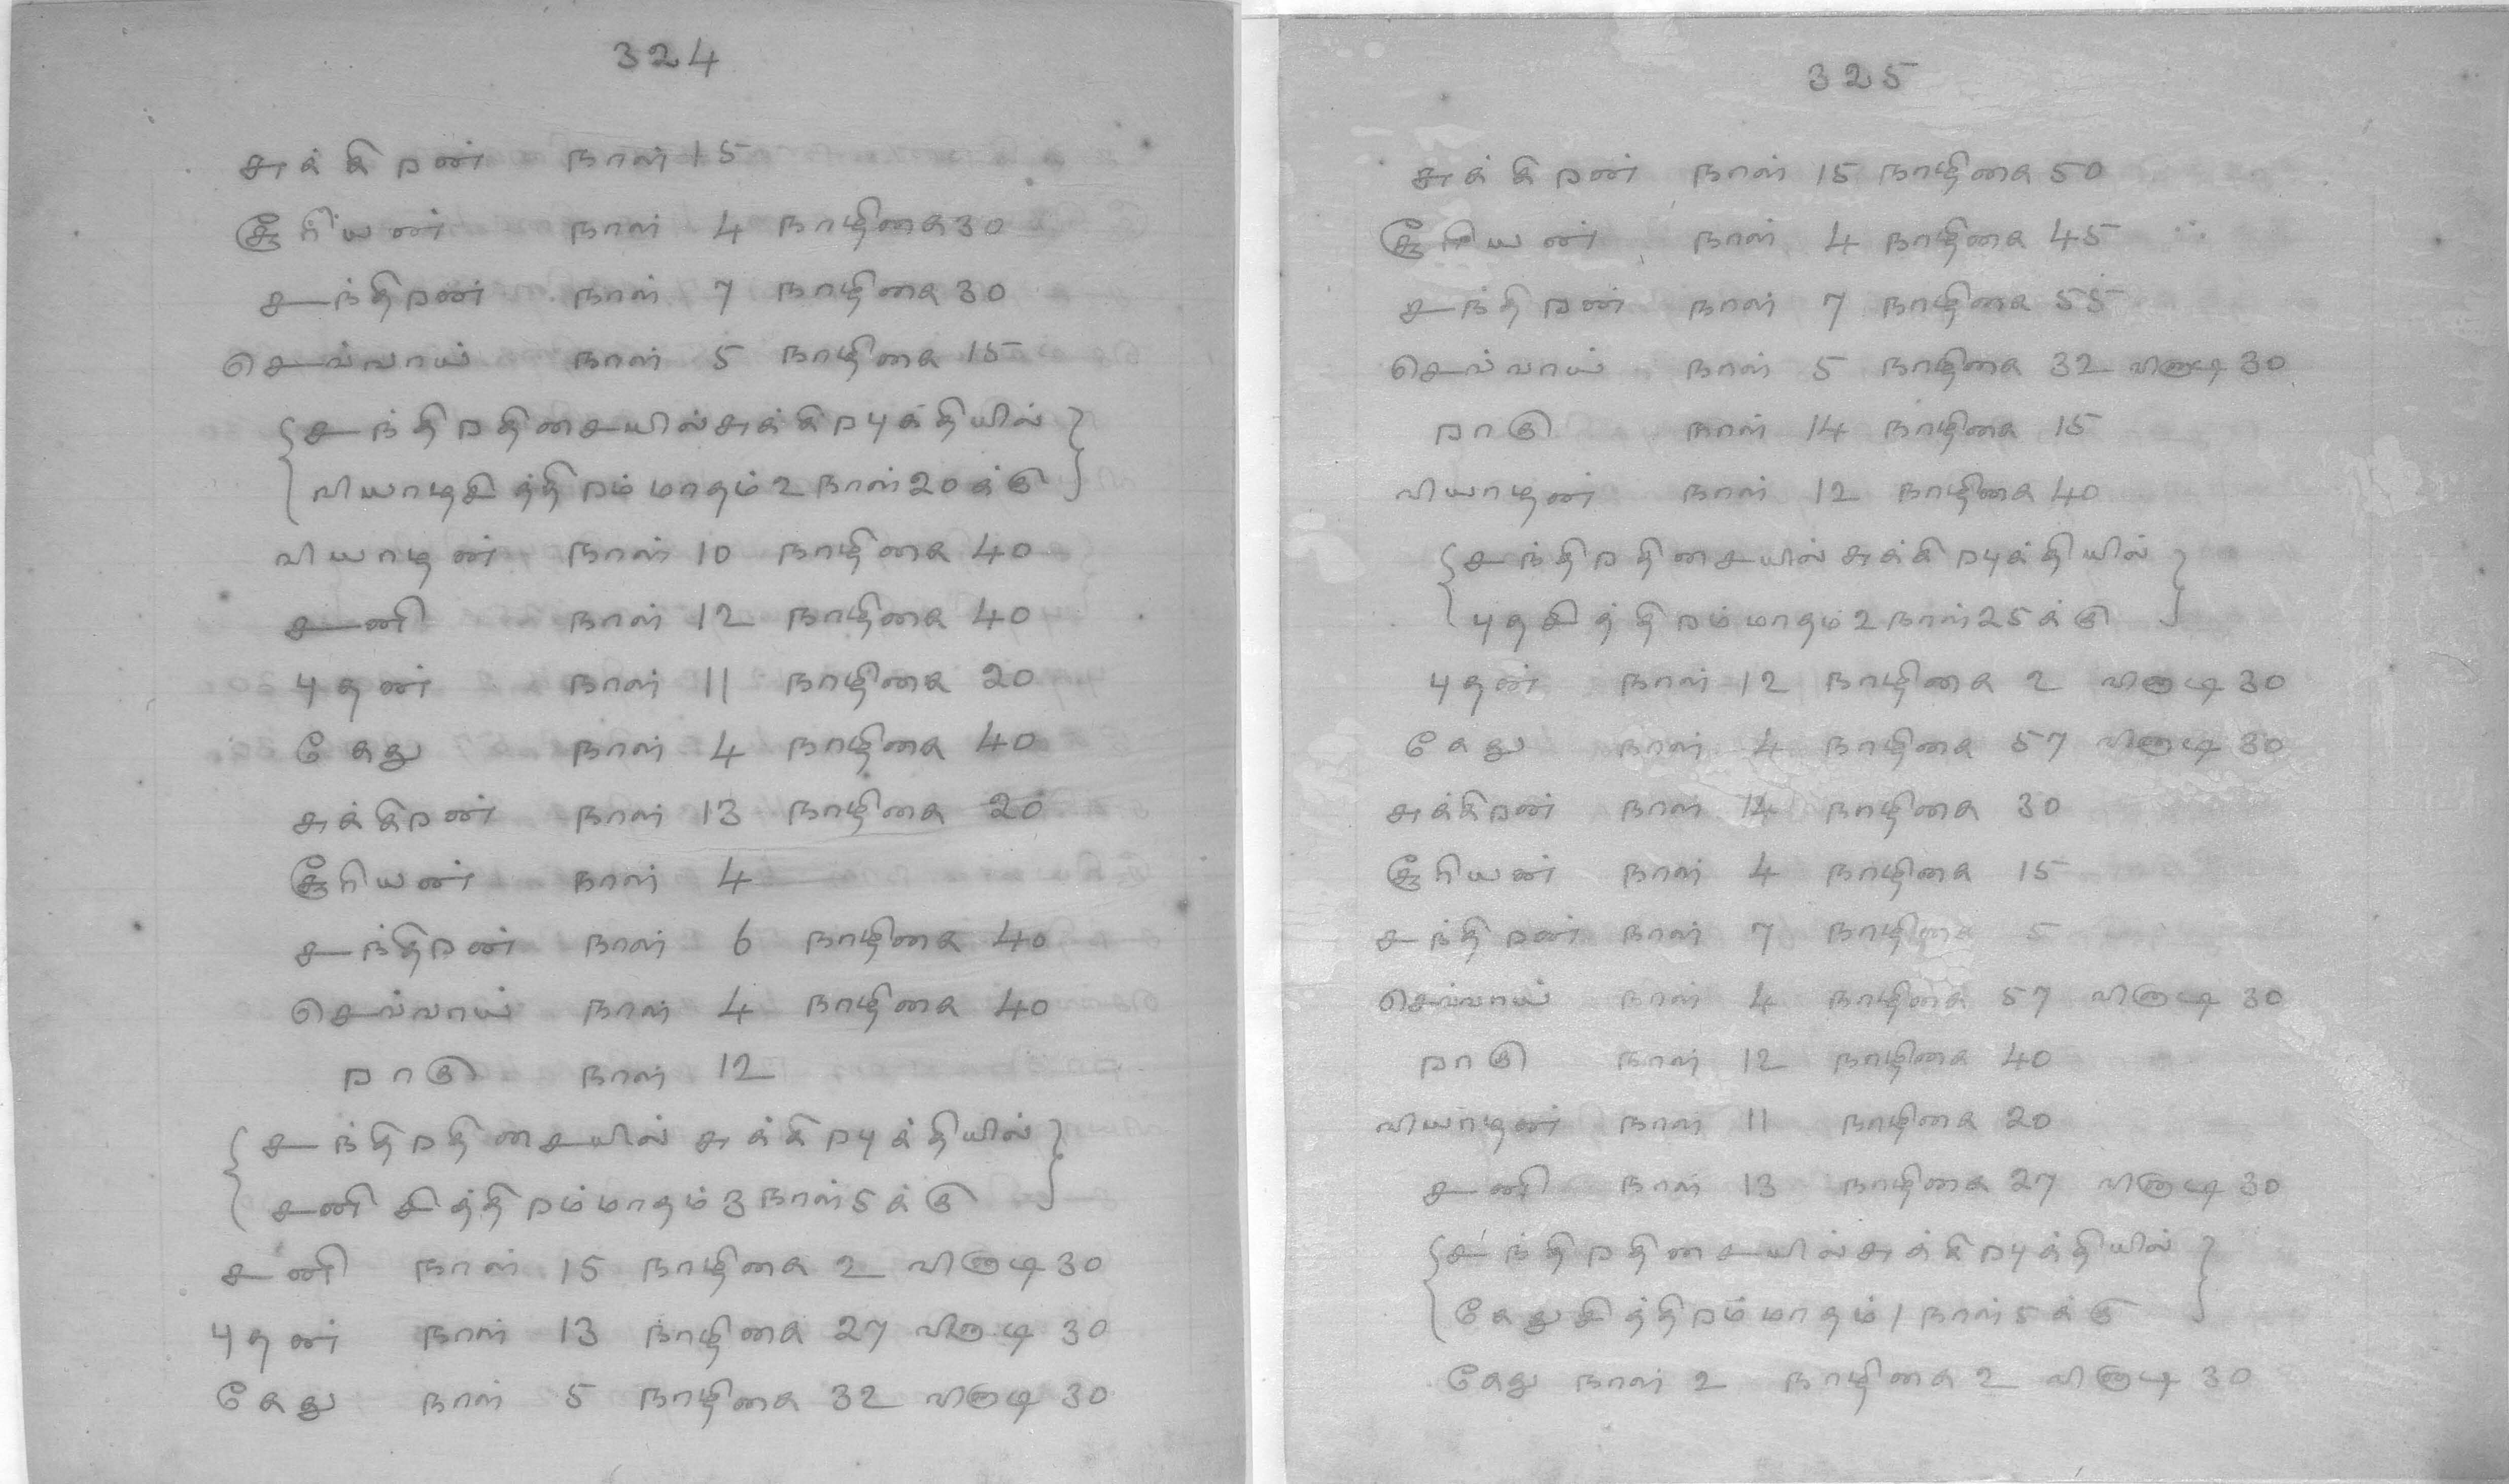 324
சுக்கிறன் நாள் 15
சூரியன் நாள் 4 நாழிகை 30
சந்திறன் நாள் 7 நாழிகை 30
செவ்வாய் நாள் 5 நாழிகை 15
{சந்திறதிசையில் சுக்கிறபுக்தியில்}
{வியாழசித்திறம் மாதம் 2 நாள் 20க்கு}
வியாழன் நாள் 10 நாழிகை 40
சனி நாள் 12 நாழிகை 40
புதன் நாள் 11 நாழிகை 20
கேது நாள் 4 நாழிகை 40
சுக்கிறன் நாள் 13 நாழிகை 20
சூரியன் நாள் 4
சந்திறன் நாள் 6 நாழிகை 40
செவ்வாய் நாள் 4 நாழிகை 40
றாகு நாள் 12
{சந்திறதிசையில் சுக்கிறபுக்தியில்}
{சனி சித்திறம் மாதம் 3 நாள் 5க்கு}
சனி நாள் 15 நாழிகை 2 விநாடி 30
புதன் நாள் 13 நாழிகை 27 விநாடி 30
கேது நாள் 5 நாழிகை 32 விநாடி 30
325
சுக்கிறன் நாள் 15 நாழிகை 50
சூரியன் நாள் 4 நாழிகை 45
சந்திறன் நாள் 7 நாழிகை 55
செவ்வாய் நாள் 5 நாழிகை 32 விநாடி 30
றாகு நாள் 14 நாழிகை 15
வியாழன் நாள் 12 நாழிகை 40
{சந்திறதிசையில் சுக்கிறபுக்தியில்}
{புதசித்திறம் மாதம் 2 நாள் 25க்கு}
புதன் நாள் 12 நாழிகை 2 விநாடி 30
கேது நாள் 4 நாழிகை 57 விநாடி 30
சுக்கிறன் நாள் 14 நாழிகை 30
சூரியன் நாள் 4 நாழிகை 15
சந்திறன் நாள் 7 நாழிகை 5
செவ்வாய் நாள் 4 நாழிகை 57 விநாடி 30
றாகு நாள் 12 நாழிகை 40
வியாழன் நாள் 11 நாழிகை 20
சனி நாள் 13 நாழிகை 27 விநாடி 30
{சந்திறதிசையில் சுக்கிறபுக்தியில்}
{கேதுசித்திறம் மாதம் 1 நாள் 5க்கு}
கேது நாள் 2 நாழிகை 2 விநாடி 30